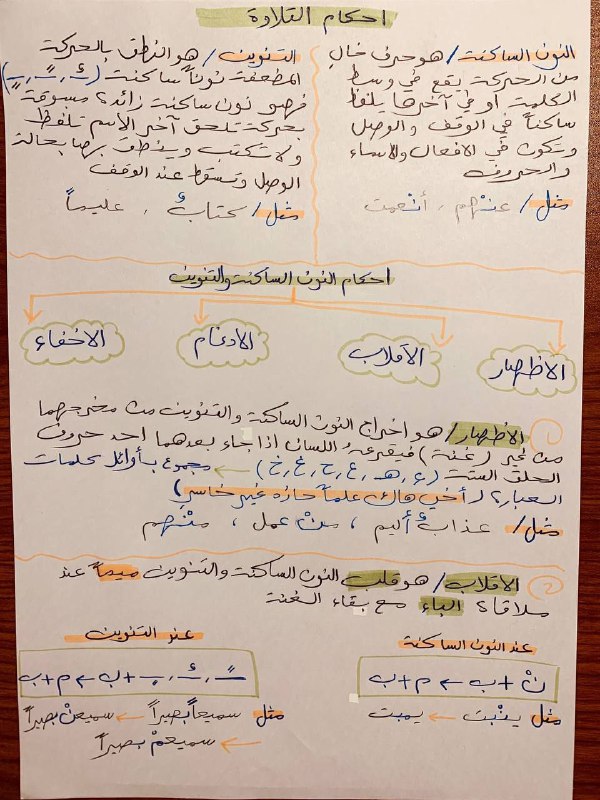 احكام التلاوة
النون الساكنة / هو حرف خالٍ
من الحركة يقع في وسط
الكلمة او في آخرها يلفظ
ساكناً في الوقف والوصل
وتكون في الافعال والاسماء
والحروف
مثل / عنْهم ، أنْعمت
التنوين / هو النطق بالحركة
المضعفة نوناً ساكنة (ـٌ ، ـً ، ـٍ)
فهو نون ساكنة زائدة مسبوقة
بحركة تلحق آخر الاسم تلفظ
ولا تكتب وينطق بها بحالة
الوصل وتسقط عند الوقف
مثل / كتابٌ ، عليماً
احكام النون الساكنة والتنوين
الاظهار
الاقلاب
الادغام
الاخفاء
١ الاظهار / هو اخراج النون الساكنة والتنوين من مخرجهما
من غير (غنة) فيقرعه اللسان اذا جاء بعدهما احد حروف
الحلق الستة (ء ، هـ ، ع ، ح ، غ ، خ) ← مجموع بأوائل كلمات
العبارة (أخي هاك علماً حازه غير خاسر)
مثل / عذابٌ أليم ، منْ عمل ، منْهم
٢ الاقلاب / هو قلب النون الساكنة والتنوين ميماً عند
ملاقاة الباء مع بقاء الغنة
عند النون الساكنة
نْ + ب ← م + ب
مثل ينْبت ← يمبت
عند التنوين
ـً ، ـٌ ، ـٍ + ب ← م + ب
مثل سميعاً بصيراً ← سميعنْ بصيراً
← سميعمْ بصيراً